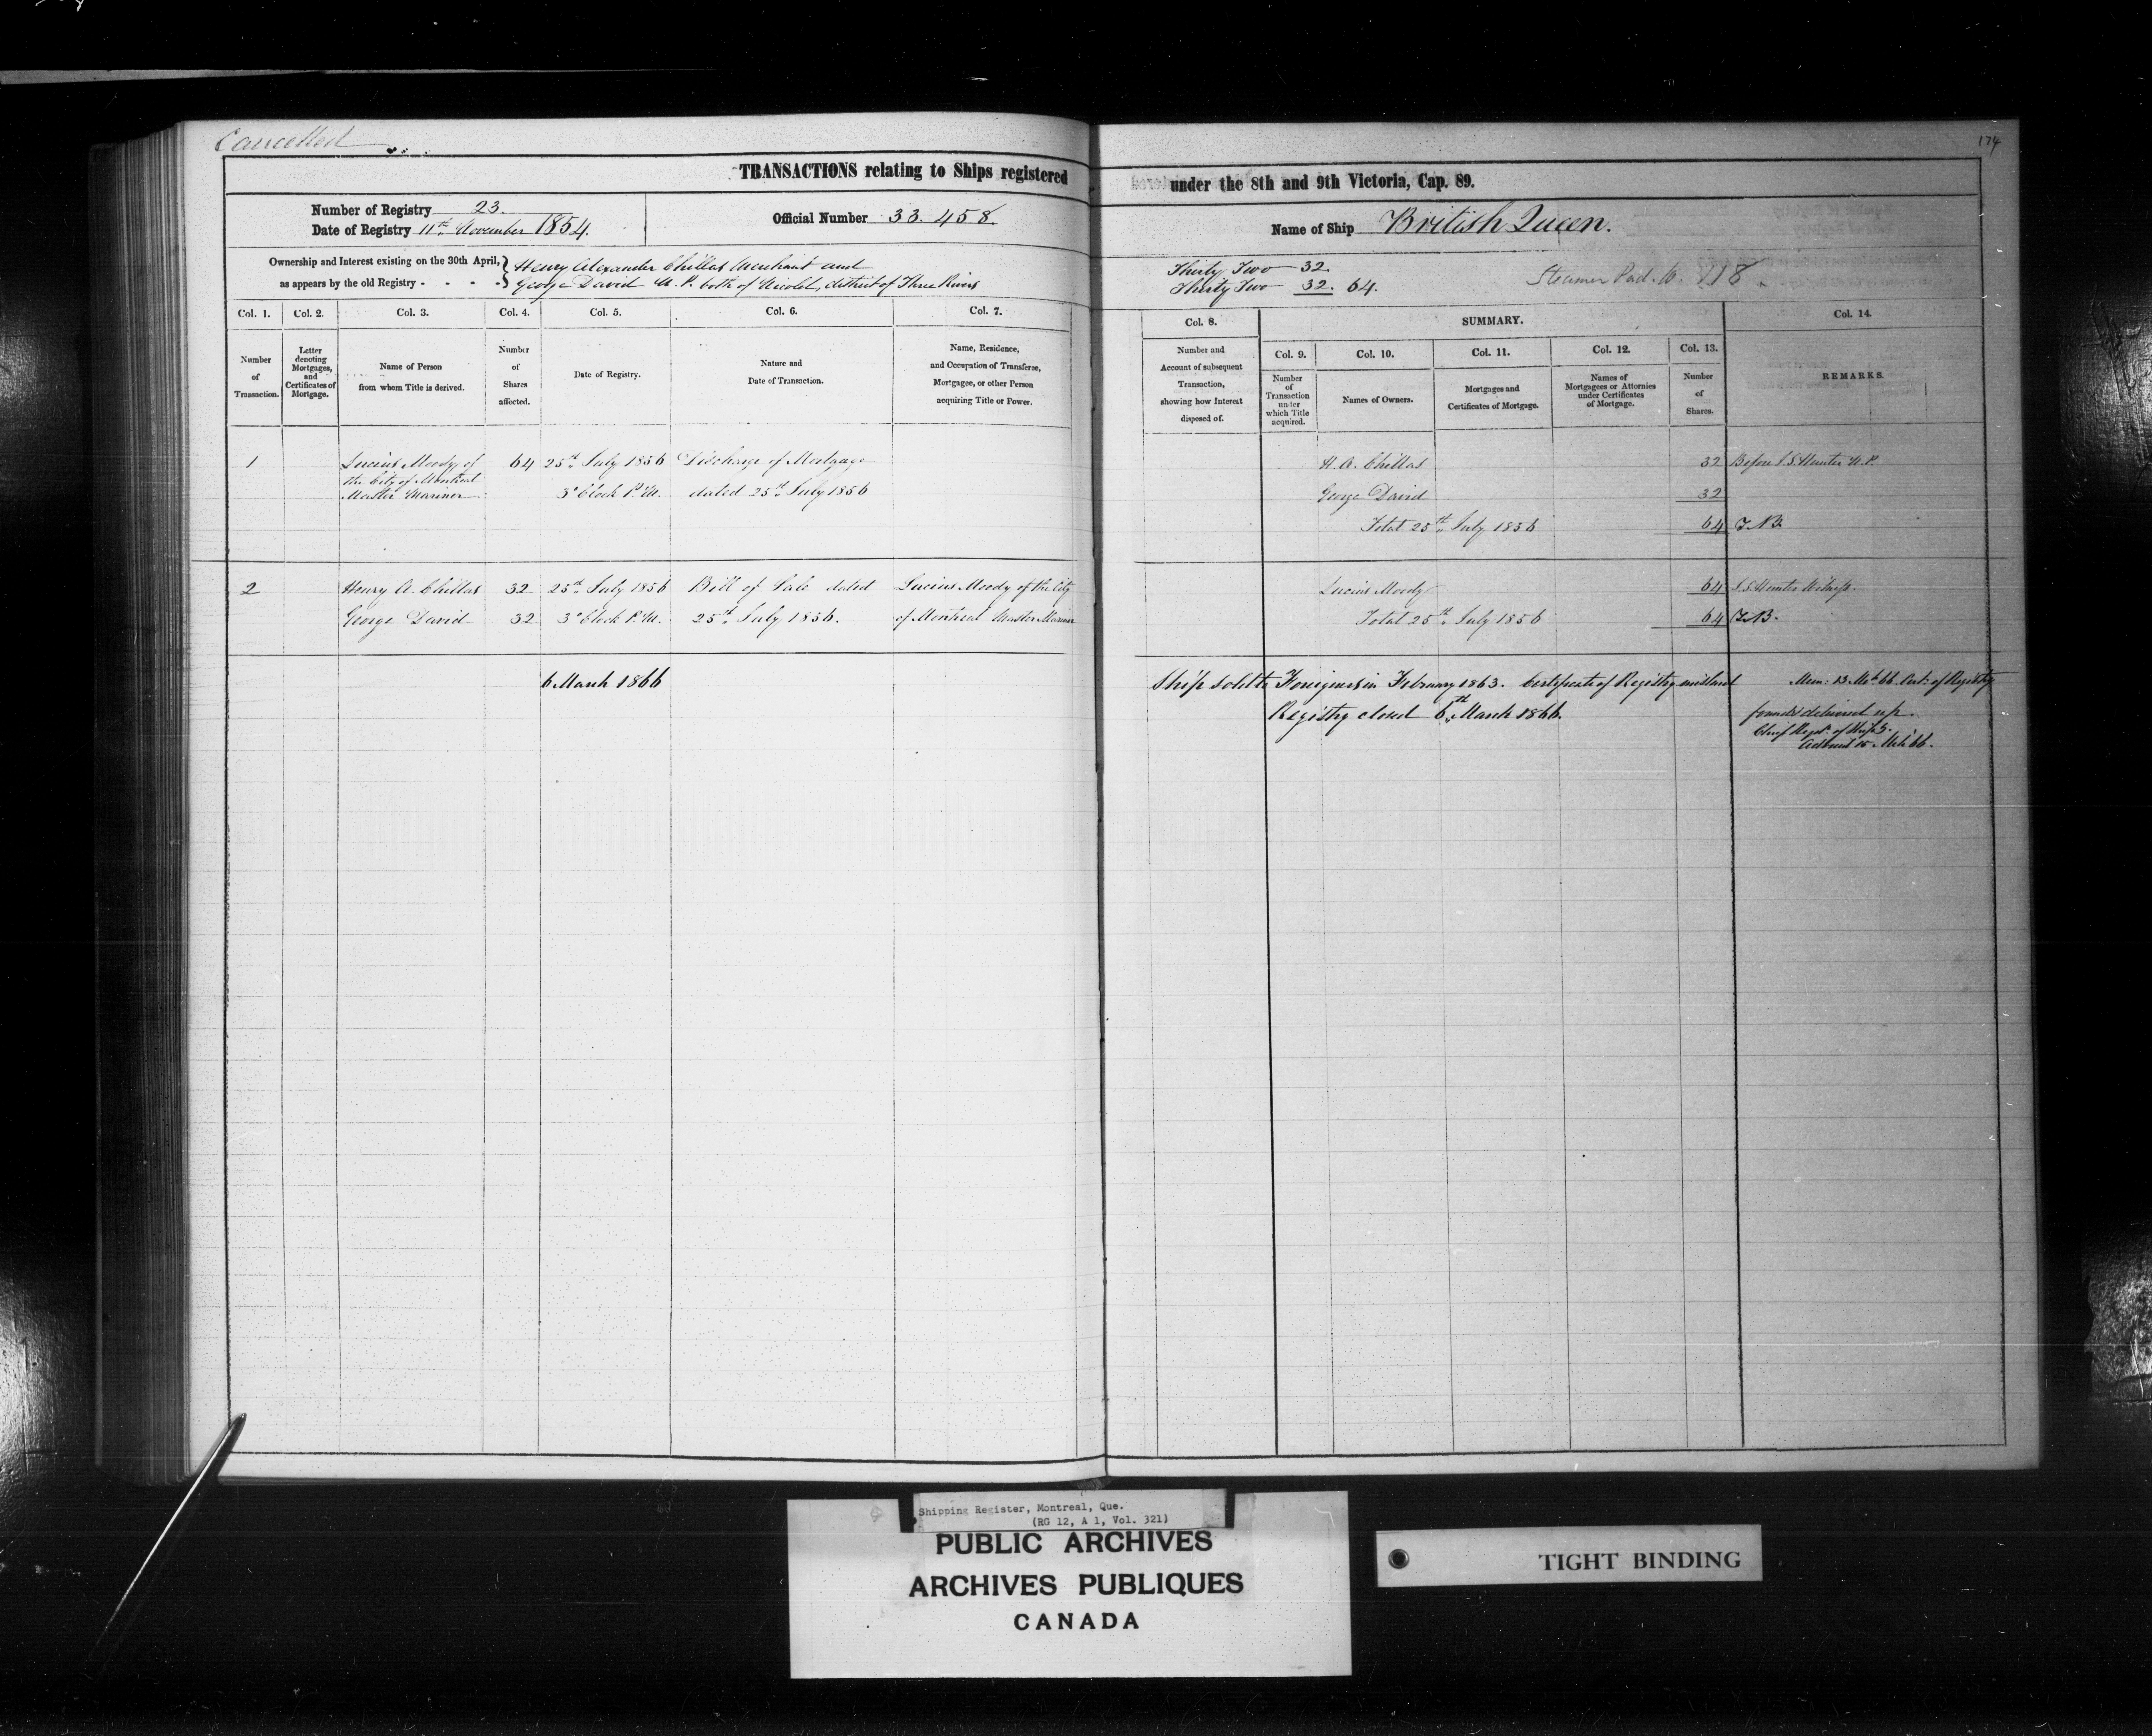 Cancelled
174
TRANSACTIONS relating to Ships registered under the 8th and 9th Victoria, Cap. 89.
Number of Registry 23.
Date of Registry 11th November 1854.
Official Number 33.458.
Name of Ship British Queen.
Ownership and Interest existing on the 30th April,
as appears by the old Registry - - - -
Henry Alexander Chillas Merchant and
George David N. P. both of Nicolet, district of Three Rivers
Thirty Two 32
Thirty Two 32. 64.
Steamer Pad. W. 118
Col. 1.
Number
of
Transaction.
Col. 2.
Letter
denoting
Mortgages,
and
Certificates of
Mortgage.
Col. 3.
Name of Person
from whom Title is derived.
Col. 4.
Number
of
Shares
affected.
Col. 5.
Date of Registry.
Col. 6.
Nature and
Date of Transaction.
Col. 7.
Name, Residence,
and Occupation of Transferee,
Mortgagee, or other Person
acquiring Title or Power.
Col. 8.
Number and
Account of subsequent
Transaction,
showing how Interest
disposed of.
SUMMARY.
Col. 9.
Number
of
Transaction
under
which Title
acquired.
Col. 10.
Names of Owners.
Col. 11.
Mortgages and
Certificates of Mortgage.
Col. 12.
Names of
Mortgagees or Attornies
under Certificates
of Mortgage.
Col. 13.
Number
of
Shares.
Col. 14.
REMARKS.
1
Lucius Moody of
the City of Montreal
Master Mariner
64
25th July 1856
3 o'clock P.M.
Discharge of Mortgage
dated 25th July 1856
H. A. Chillas 32
George David 32
Total 25th July 1856 64
Before S. S. Hunter N.P.
2
Henry A. Chillas 32
George David 32
25th July 1856
3 o'clock P.M.
Bill of Sale dated
25th July 1856.
Lucius Moody of the City
of Montreal Master Mariner
Lucius Moody 64
Total 25th July 1856 64
S. S. Hunter Witness.
6 March 1866
Ship sold to Foreigners in February 1863. Certificate of Registry mislaid
Registry closed 6th March 1866.
Mem: 13 Mch 66. Cert: of Registry
found & delivered up.
Chief Regr. of Ships.
Advised 15 Mch 66.
Shipping Register, Montreal, Que.
(RG 12, A 1, Vol. 321)
PUBLIC ARCHIVES
ARCHIVES PUBLIQUES
CANADA
TIGHT BINDING